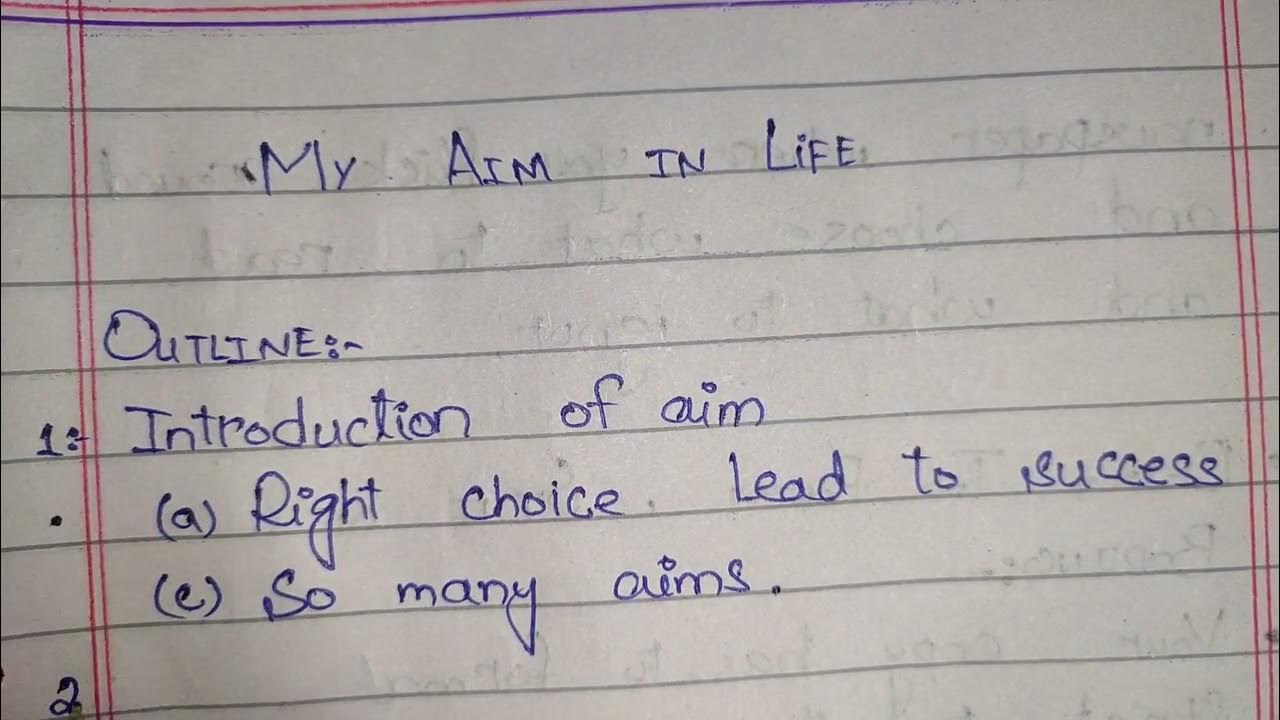 My Aim in Life
OUTLINE:-
1:- Introduction of aim
(a) Right choice. lead to success
(e) So many aims.
2